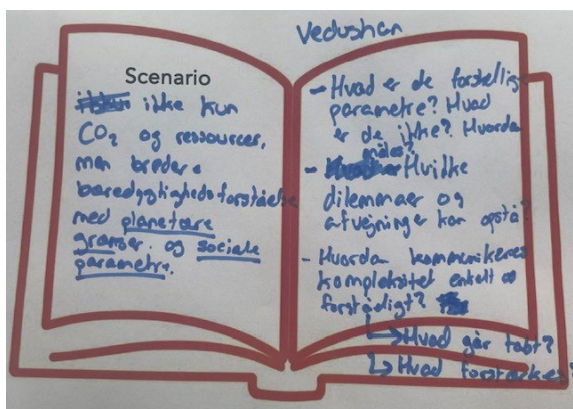 Scenario
ikke kun
CO₂ og ressourcer,
men bredere
bæredygtighedsforståelse
med planetære
grænser. og sociale
parametre.
Vedushan
- Hvad er de forskellige
parametre? Hvad
er de ikke? Hvordan
måles?
- Hvilke
dilemmaer og
afvejninger kan opstå?
- Hvordan kommunikeres
kompleksitet enkelt og
forståeligt?
↳ Hvad går tabt?
↳ Hvad forstærkes?